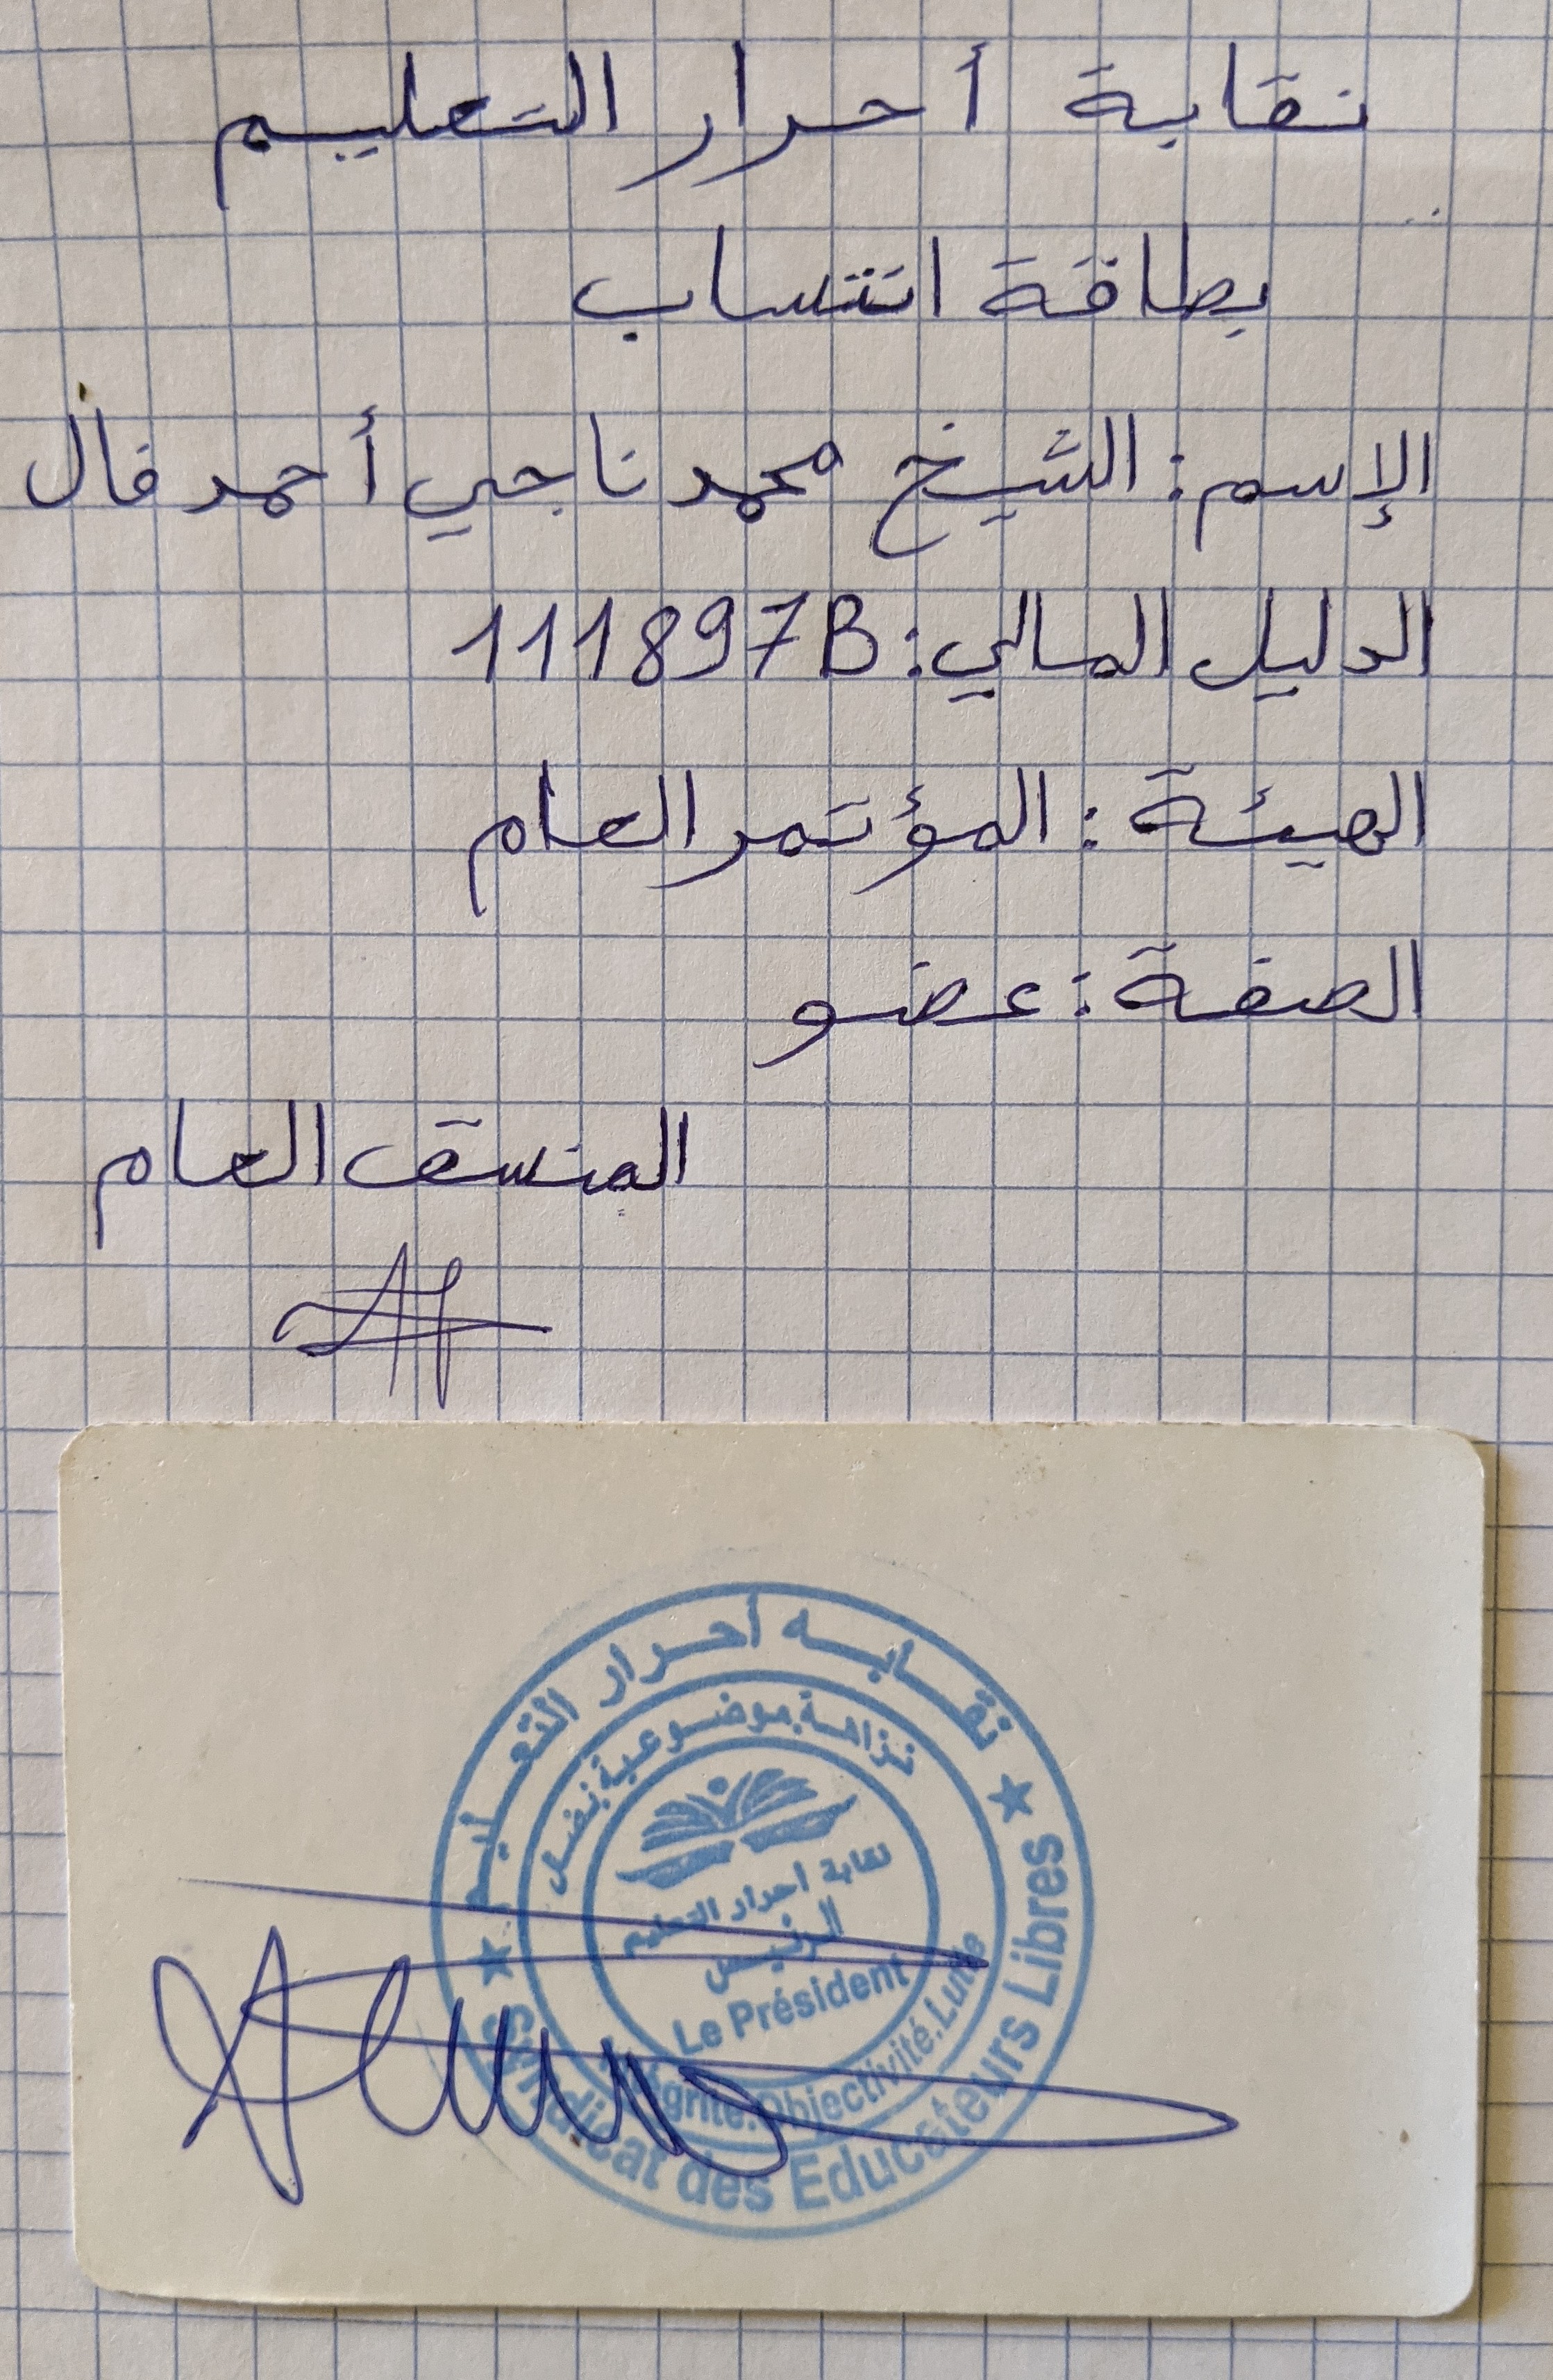 نقابة أحرار التعليم
بطاقة انتساب
الإسم: الشيخ محمد ناجي أحمد فال
الدليل المالي: 111897B
الهيئة: المؤتمر العام
الصفة: عضو
المنسق العام
نقابه أحرار التعليم
نزاهة.موضوعية.نضال
نقابة أحرار التعليم
الرئيس
Le Président
Objectivité.Lutte
Syndicat des Educateurs Libres